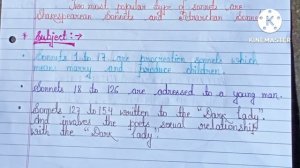 Two most popular type of sonnets are
Shakespearean Sonnets and Petrarchan Sonnets
* Subject :->
Sonnets 1 to 17 are procreation sonnets which
mean marry and produce children.
Sonnets 18 to 126 are adressed to a young man.
Sonnets 127 to 154 written to the "Dark Lady"
And involves the poets sexual relationship
with the "Dark lady"
KINEMASTER